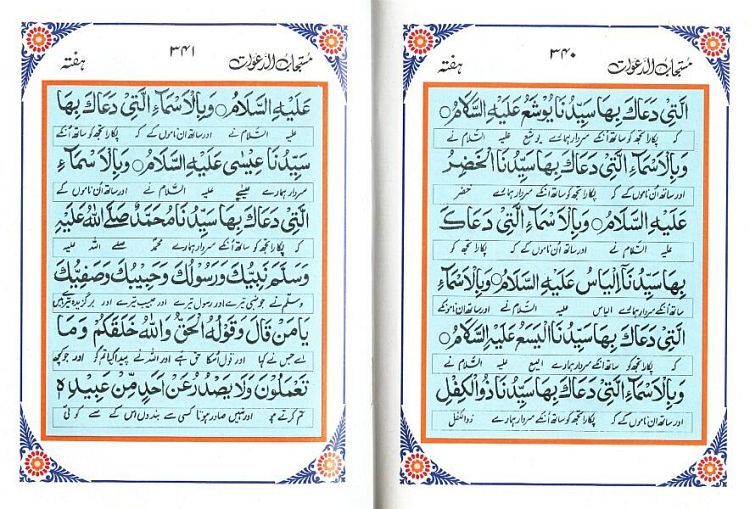 مستجاب الدعوات ۳۴۰ ہفتہ
الَّتِيْ دَعَاكَ بِهَا سَيِّدُنَا يُوْشَعُ عَلَيْهِ السَّلَامُ ○
کہ پکارا تجھ کو ساتھ اُنکے سردار ہمارے یوشع علیہ السلام نے
وَبِالْاَسْمَآءِ الَّتِيْ دَعَاكَ بِهَا سَيِّدُنَا الْخَضِرُ
اور ساتھ اُن ناموں کے کہ پکارا تجھ کو ساتھ اُنکے سردار ہمارے خضر
عَلَيْهِ السَّلَامُ ○ وَبِالْاَسْمَآءِ الَّتِيْ دَعَاكَ
علیہ السلام نے اور ساتھ اُن ناموں کے کہ پکارا تجھ کو
بِهَا سَيِّدُنَا اِلْيَاسُ عَلَيْهِ السَّلَامُ ○ وَبِالْاَسْمَآءِ
ساتھ اُنکے سردار ہمارے الیاس علیہ السلام نے اور ساتھ اُن ناموں کے
الَّتِيْ دَعَاكَ بِهَا سَيِّدُنَا الْيَسَعُ عَلَيْهِ السَّلَامُ ○
کہ پکارا تجھ کو ساتھ اُنکے سردار ہمارے الیسع علیہ السلام نے
وَبِالْاَسْمَآءِ الَّتِيْ دَعَاكَ بِهَا سَيِّدُنَا ذُو الْكِفْلِ
اور ساتھ اُن ناموں کے کہ پکارا تجھ کو ساتھ اُنکے سردار ہمارے ذوالکفل
مستجاب الدعوات ۳۴۱ ہفتہ
عَلَيْهِ السَّلَامُ ○ وَبِالْاَسْمَآءِ الَّتِيْ دَعَاكَ بِهَا
علیہ السلام نے اور ساتھ ان ناموں کے کہ پکارا تجھ کو ساتھ اُنکے
سَيِّدُنَا عِيْسٰى عَلَيْهِ السَّلَامُ ○ وَبِالْاَسْمَآءِ
سردار ہمارے عیسٰے علیہ السلام نے اور ساتھ اُن ناموں کے
الَّتِيْ دَعَاكَ بِهَا سَيِّدُنَا مُحَمَّدٌ صَلَّے اللّٰهُ عَلَيْهِ
کہ پکارا تجھ کو ساتھ اُنکے سردار ہمارے محمد صلے اللہ علیہ
وَسَلَّمَ نَبِيُّكَ وَرَسُوْلُكَ وَحَبِيْبُكَ وَصَفِيُّكَ
وسلم نے جو نبی تیرے اور رسول تیرے اور حبیب تیرے اور برگزیدہ تیرے ہیں
يَا مَنْ قَالَ وَقَوْلُهُ الْحَقُّ وَاللّٰهُ خَلَقَكُمْ وَمَا
اے جس نے کہا اور قول اُسکا حق ہے اور اللہ نے پیدا کیا تم کو اور جو کچھ
تَعْمَلُوْنَ وَلَا يَصْدُرُ عَنْ اَحَدٍ مِّنْ عَبِيْدِهٖ
تم کرتے ہو اور نہیں صادر ہوتا کسی سے بندوں اس کے سے کوئی